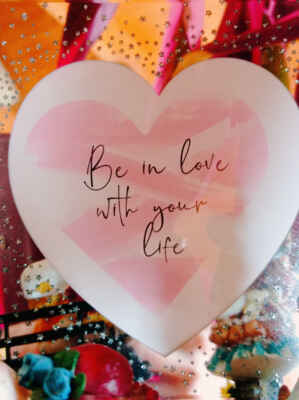 Be in love
with your
life